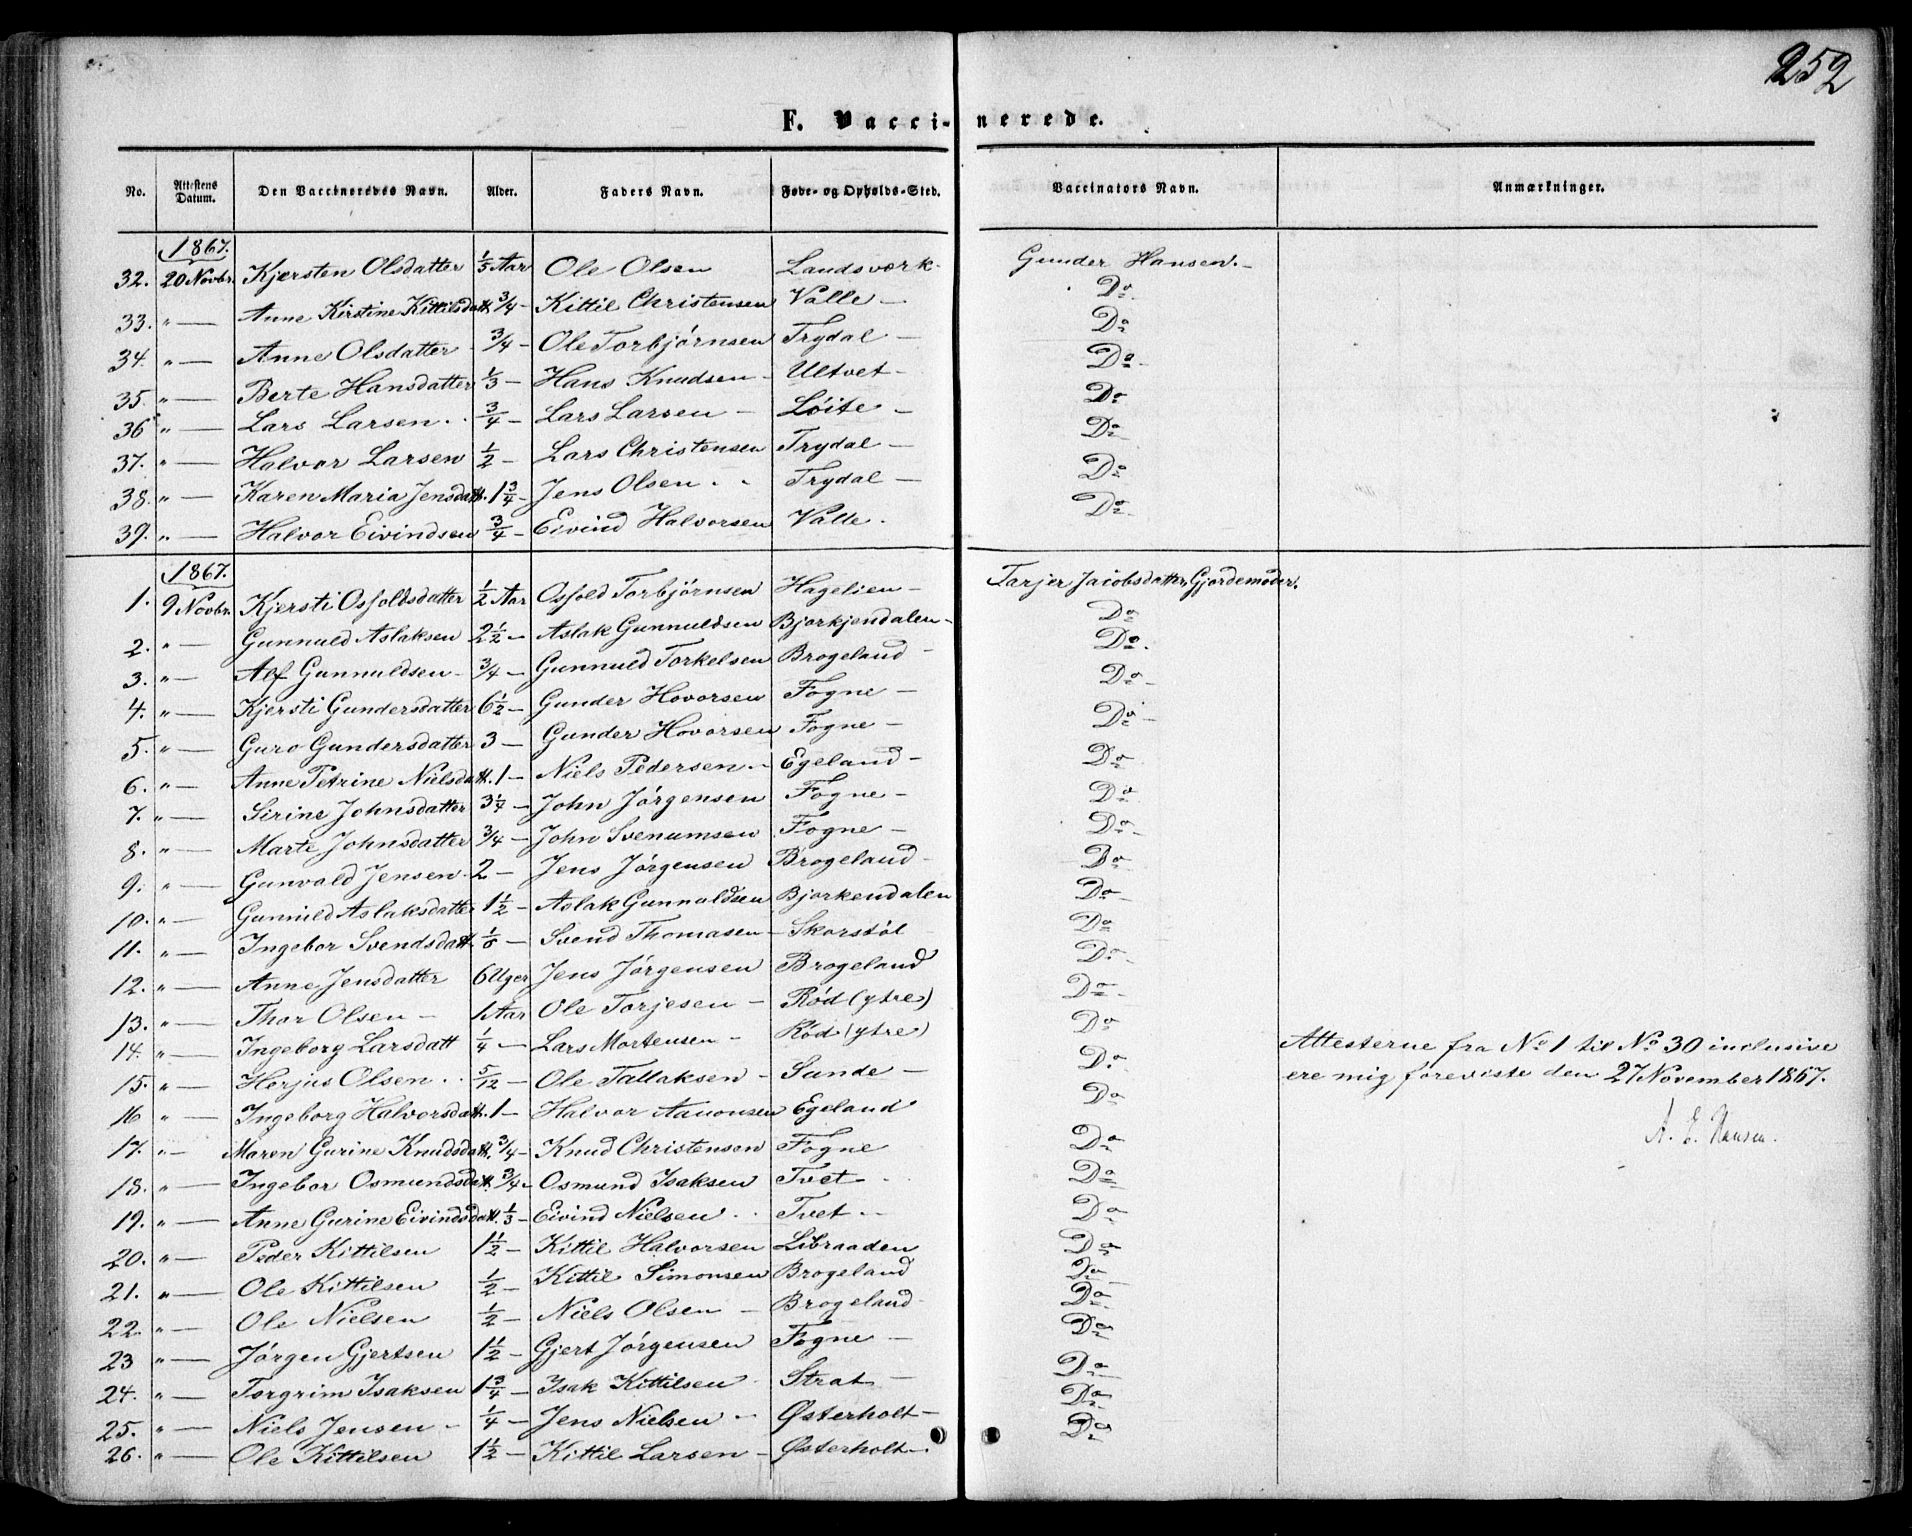 252
F. Vaccinerede.
No. Attestens Datum. Den Vaccineredes Navn. Alder. Faders Navn. Føde- og Opholds-Sted. Vaccinators Navn. Anmærkninger.
1867.
32. 20 Novbr. Kjersten Olsdatter 1/3 Aar Ole Olsen Landsværk - Gunder Hansen. -
33. " — Anne Kirstine Kittilsdatt. 3/4 - Kittil Christensen Valle - Do
34. " — Anne Olsdatter 3/4 - Ole Torbjørnsen Trydal - Do
35. " — Berte Hansdatter 1/3 - Hans Knudsen - Ultvet - Do
36 " — Lars Larsen. 3/4 - Lars Larsen - Løite - Do
37. " — Halvor Larsen 1/2 - Lars Christensen Trydal - Do
38. " — Karen Maria Jensdatt. 1 3/4 - Jens Olsen Trydal - Do
39. " — Halvor Eivindsen 3/4 - Eivind Halvorsen Valle. Do
1867.
1. 9 Novbr. Kjersti Osfoldsdatter 1/2 Aar Osfold Torbjørnsen Hagelien - Tarjer Jacobsdatter, Gjordemoder.
2. " — Gunnuld Aslaksen 2 1/2 - Aslak Gunnuldsen Bjorkjendalen - Do
3. " — Alf Gunnuldsen - 3/4 - Gunnuld Torkelsen Brogeland - Do
4. " — Kjersti Gundersdatter 6 1/2 - Gunder Hovorsen Fogne - Do
5. " — Guro Gundersdatter 3 - Gunder Hovorsen Fogne - Do
6. " — Anne Petrine Nielsdatt. 1 - Niels Pedersen - Egeland - Do
7. " — Sirine Johnsdatter 3 1/4 - John Jørgensen Fogne - Do
8. " — Marte Johnsdatter 3/4 - John Svenumsen Fogne - Do
9. " — Gunvald Jensen. 2 - Jens Jørgensen Brogeland - Do
10. " — Gunnild Aslaksdatter 1 1/2 - Aslak Gunnuldsen Bjorkendalen Do
11. " — Ingebor Svendsdatt. - Svend Thomasen - Skorstøl Do
12. " — Anne Jensdatter 6 Uger Jens Jørgensen Brogeland Do
13. " — Thor Olsen - 1 Aar Ole Torjesen - Rød (ytre) Do
14. " — Ingeborg Larsdatt 1/4 - Lars Mortensen - Rød (ytre) Do
15. " — Herjus Olsen. 5/12 - Ole Tallaksen - Sunde - Do
16 " — Ingeborg Halvorsdatt. 1 - Halvor Aanonsen Egeland Do
17. " — Maren Gurine Knudsdatt. 3/4 - Knud Christensen Fogne Do
18. " — Ingebor Osmundsdatt. 3/4 - Osmund Isaksen Tvet Do
19. " — Anne Gurine Eivindsdatt. 1/3 - Eivind Nielsen Tvet Do
20. " — Peder Kittilsen 1 1/2 - Kittil Halvorsen Libraaden Do
21. " — Ole Kittilsen 1/2 - Kittil Simonsen Brogeland Do
22. " — Ole Nielsen 1/2 - Niels Olsen - Brogeland Do
23 " — Jørgen Gjertsen 1 1/2 - Gjert Jørgensen Fogne - Do
24. " — Torgrim Isaksen 1 3/4 - Isak Kittilsen Strat - Do
25. " — Niels Jensen - 1/4 - Jens Nielsen - Østerholt - Do
26. " — Ole Kittilsen 1 1/2 - Kittil Larsen - Østerholt. Do
Attesterne fra No 1 til No 30 inclusive
ere mig foreviste den 27 November 1867.
A. E. Hansen.